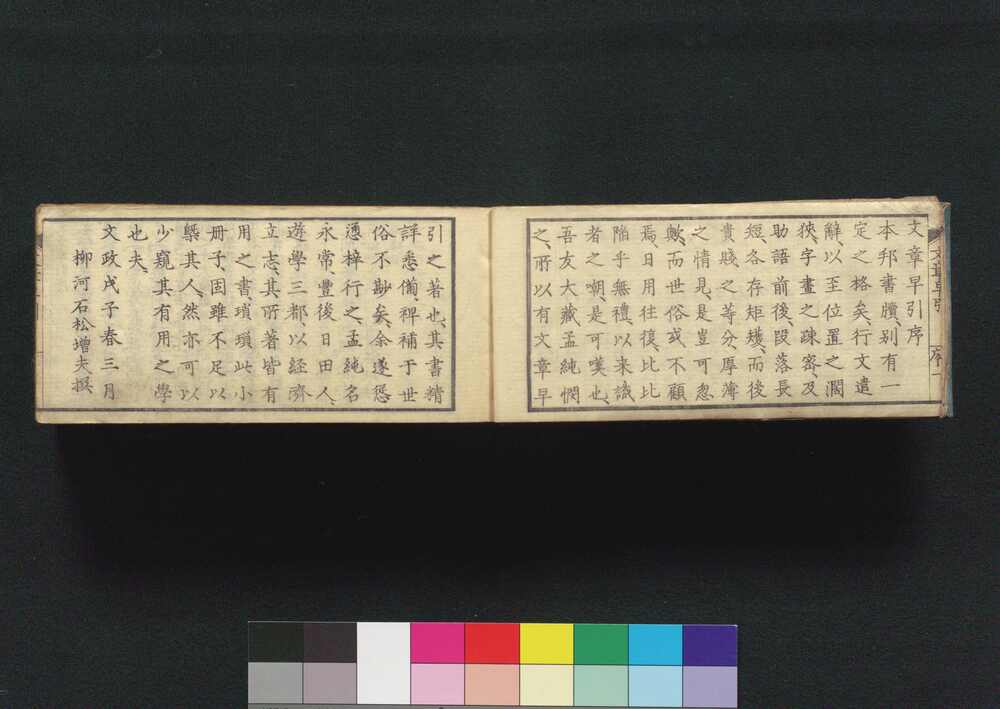 文章早引序
本邦書牘、別有一
定之格矣、行文遣
辭、以至位置之濶
狹、字畫之疎密、及
助語前後、段落長
短、各存矩矱、而後
貴賤之等分、厚薄
之情見、是豈可忽
歟、而世俗或不顧
焉、日用往復、比比
陥乎無禮、以来識
者之嘲、是可嘆也、
吾友大藏孟純憫
之、所以有文章早
引之著也、其書精
詳悉備、裨補于世
俗不尠矣、余遂慫
慂梓行之、孟純名
永常、豐後日田人、
遊學三都、以経濟
立志、其所著皆有
用之書、瑣瑣此小
冊子、固雖不足以
槩其人、然亦可以
少窺其有用之學
也夫、
文政戊子春三月
柳河石松增夫撰
文章早引
序 一